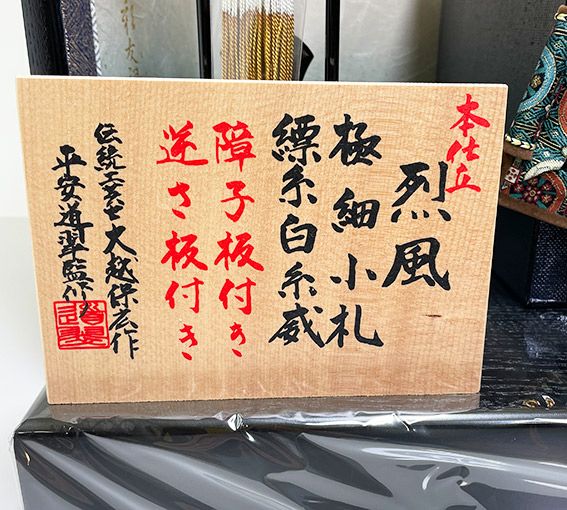 本仕立
烈風
極細小札
縹糸白糸威
障子板付き
逆さ板付き
伝統工芸士大越保広作
平安道翠監作